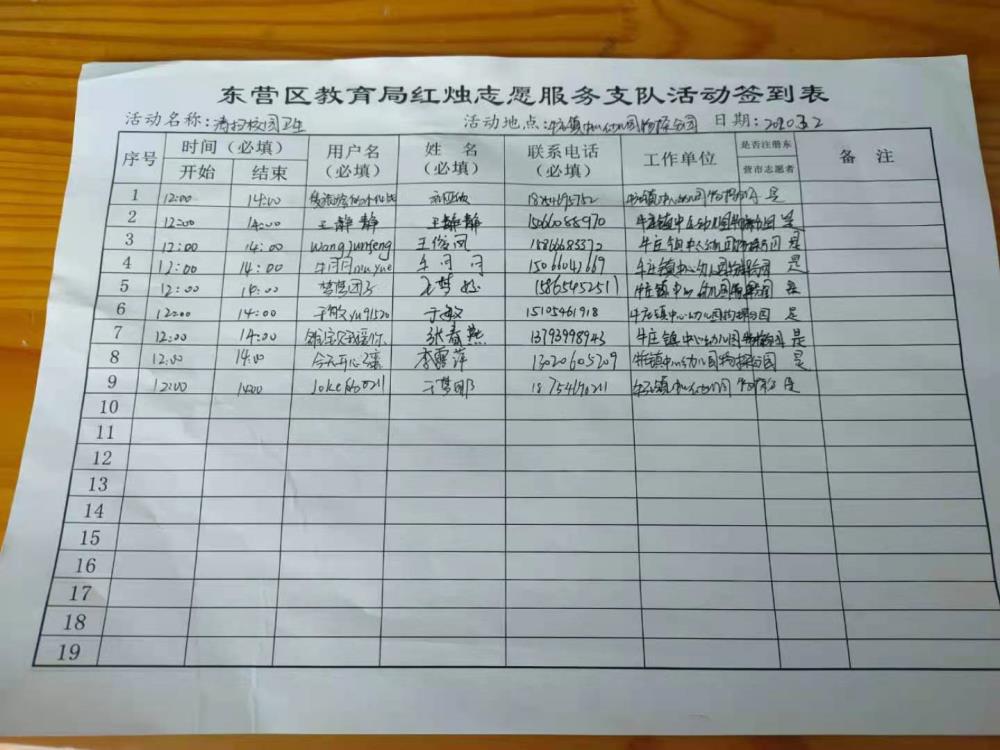 东营区教育局红烛志愿服务支队活动签到表
活动名称：清扫校园卫生 活动地点：牛庄镇中心幼儿园物探分园 日期：2020.3.2
序号 时间（必填） 用户名（必填） 姓名（必填） 联系电话（必填） 工作单位 是否注册东营市志愿者 备注
开始 结束
1 12:00 14:00 牛庄镇中心幼儿园物探分园 是
2 12:00 14:00 王静静 王静静 15066088970 牛庄镇中心幼儿园物探分园 是
3 12:00 14:00 wangjunfeng 王俊凤 15866685372 牛庄镇中心幼儿园物探分园 是
4 12:00 14:00 牛月月niuyue 牛月月 15066042669 牛庄镇中心幼儿园物探分园 是
5 12:00 14:00 梦梦团子 15865452511 牛庄镇中心幼儿园物探分园 是
6 12:00 14:00 于敏yu91520 于敏 15105461918 牛庄镇中心幼儿园物探分园 是
7 12:00 14:00 张春燕 13793998943 牛庄镇中心幼儿园物探分园 是
8 12:00 14:00 今天开心 李雪萍 13020605209 牛庄镇中心幼儿园物探分园 是
9 12:00 14:00 于梦那 18754690211 牛庄镇中心幼儿园物探分园 是
10
11
12
13
14
15
16
17
18
19